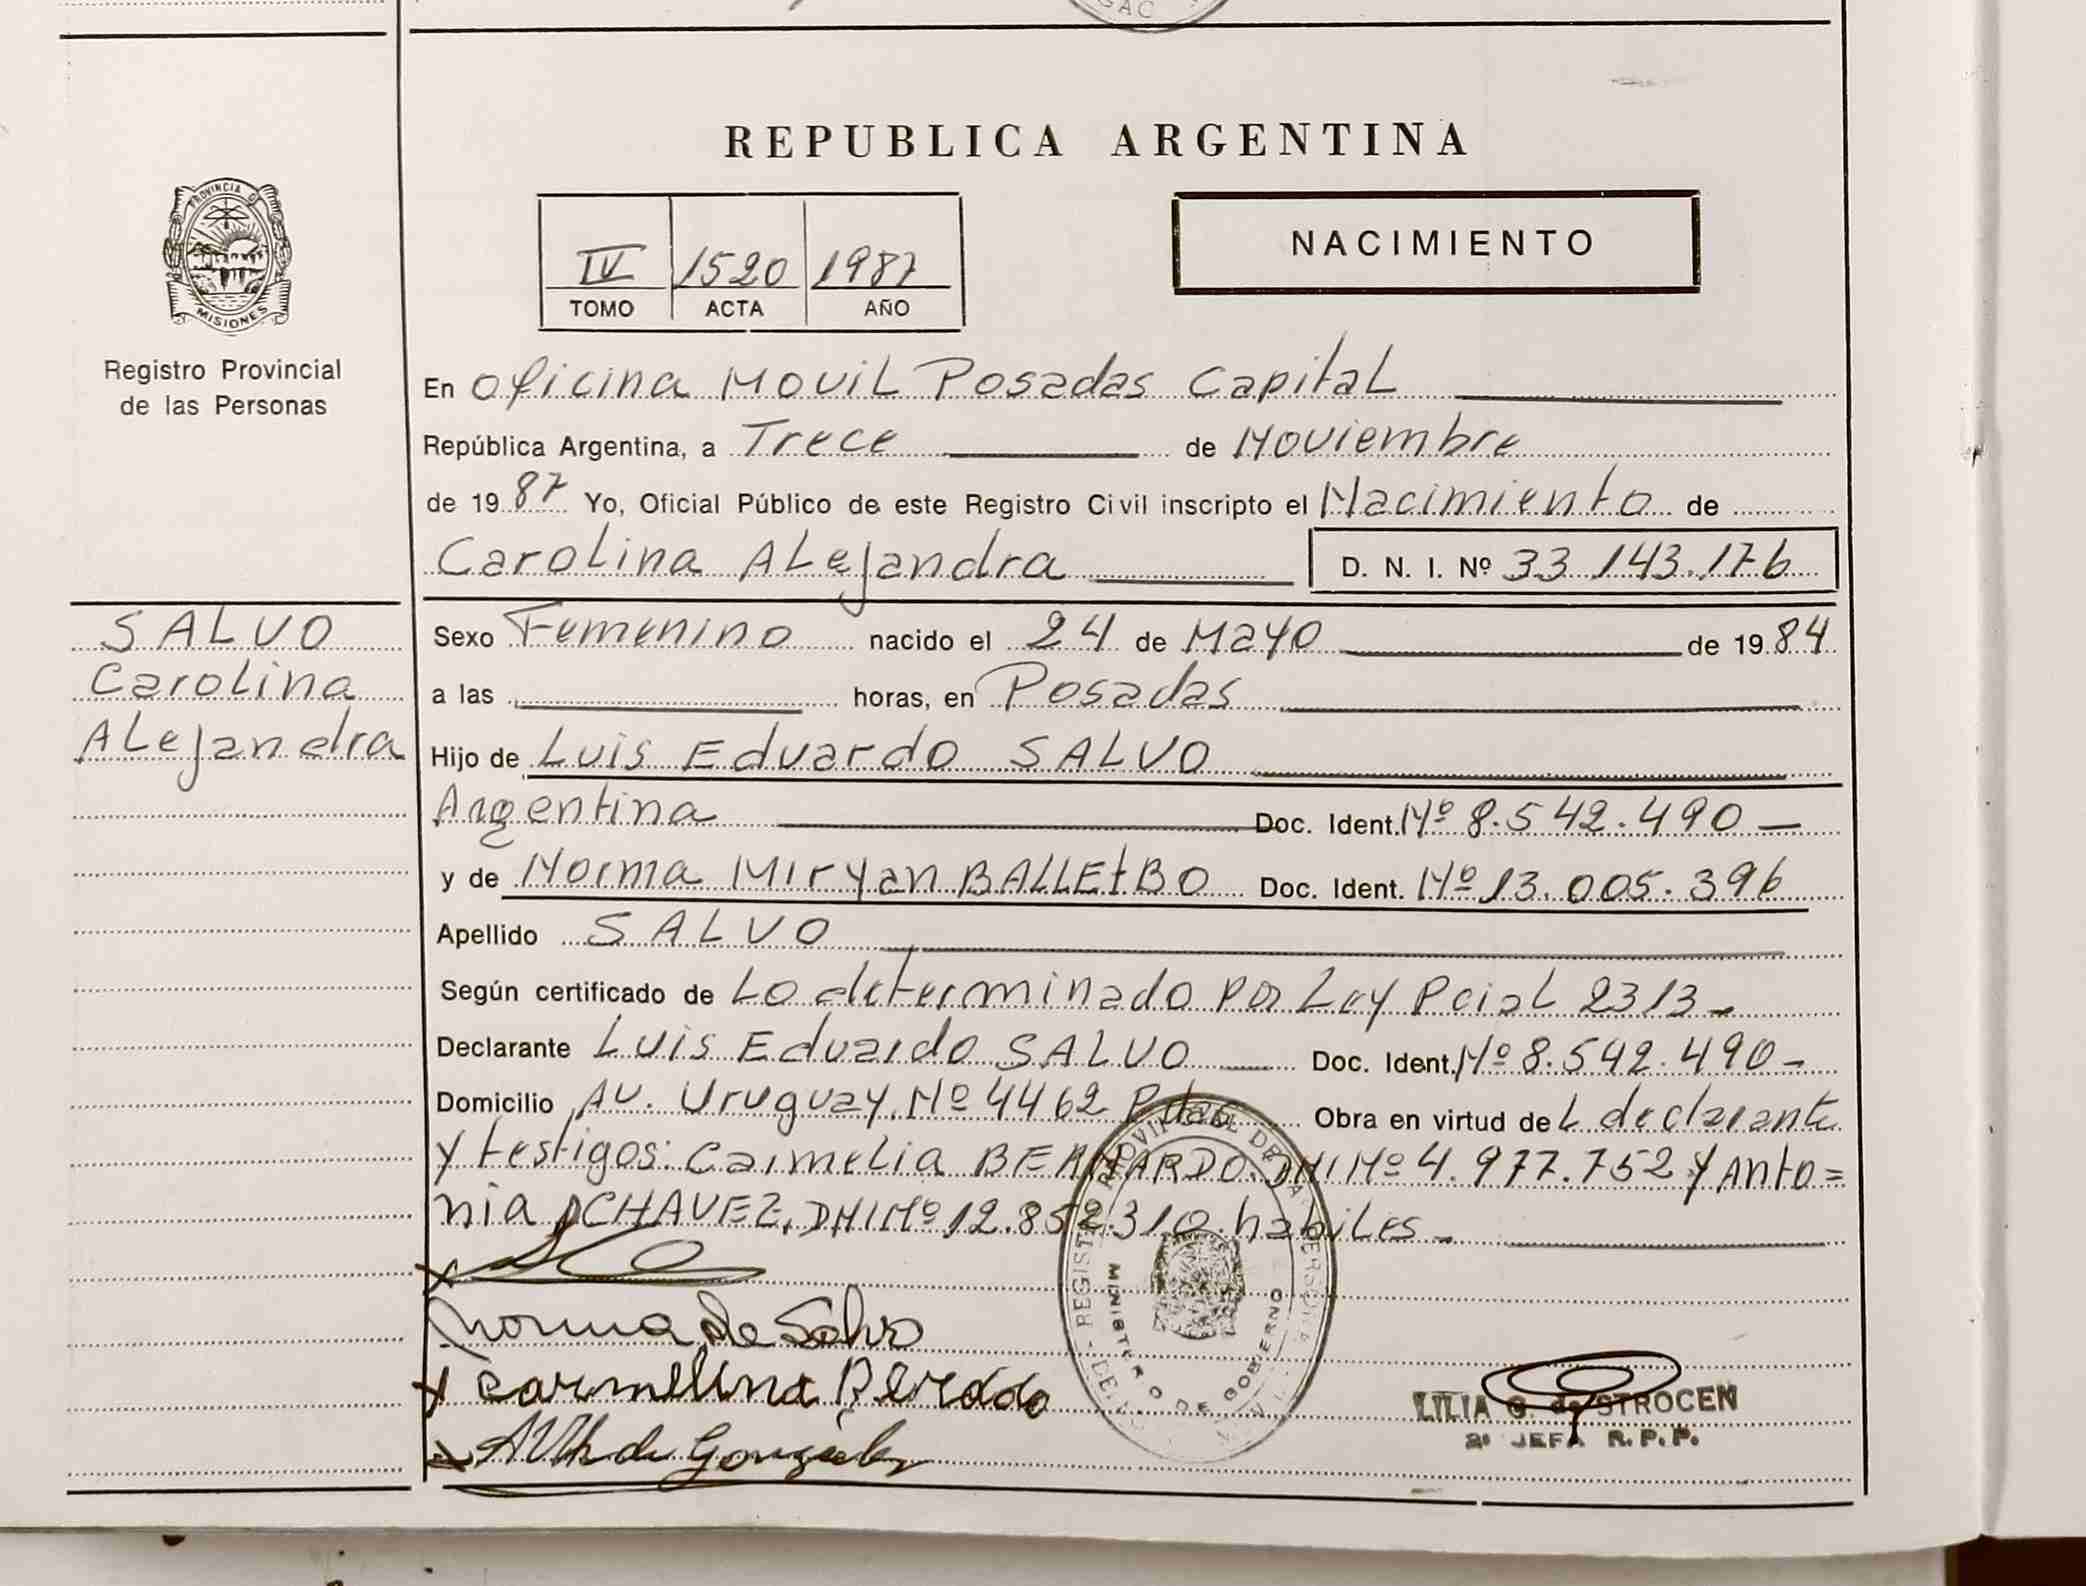 GAC
REPUBLICA ARGENTINA
PROVINCIA D
MISIONES
Registro Provincial
de las Personas
IV 1520 1987
TOMO ACTA AÑO
NACIMIENTO
En Oficina Movil Posadas Capital
República Argentina, a Trece de Noviembre
de 1987 Yo, Oficial Público de este Registro Civil inscripto el Nacimiento de
Carolina Alejandra D. N. I. Nº 33.143.176
SALVO
Carolina
Alejandra
Sexo Femenino nacido el 24 de Mayo de 1984
a las horas, en Posadas
Hijo de Luis Eduardo SALVO
Argentina Doc. Ident. Nº 8.542.490
y de Norma Miryan BALLEtBO Doc. Ident. Nº 13.005.396
Apellido SALVO
Según certificado de Lo determinado por Ley Pcial 2313
Declarante Luis Eduardo SALVO Doc. Ident. Nº 8.542.490
Domicilio AV. Uruguay Nº 4462 Pdas Obra en virtud de L declarante
y testigos: Carmelia BERNARDO. DNI Nº 4.977.752 y Anto=
nia CHAVEZ, DNI Nº 12.852.310 habiles
Norma de Salvo
MINISTERIO DE GOBIERNO
LILIA G. de STROCEN
2ª JEFA R.P.P.